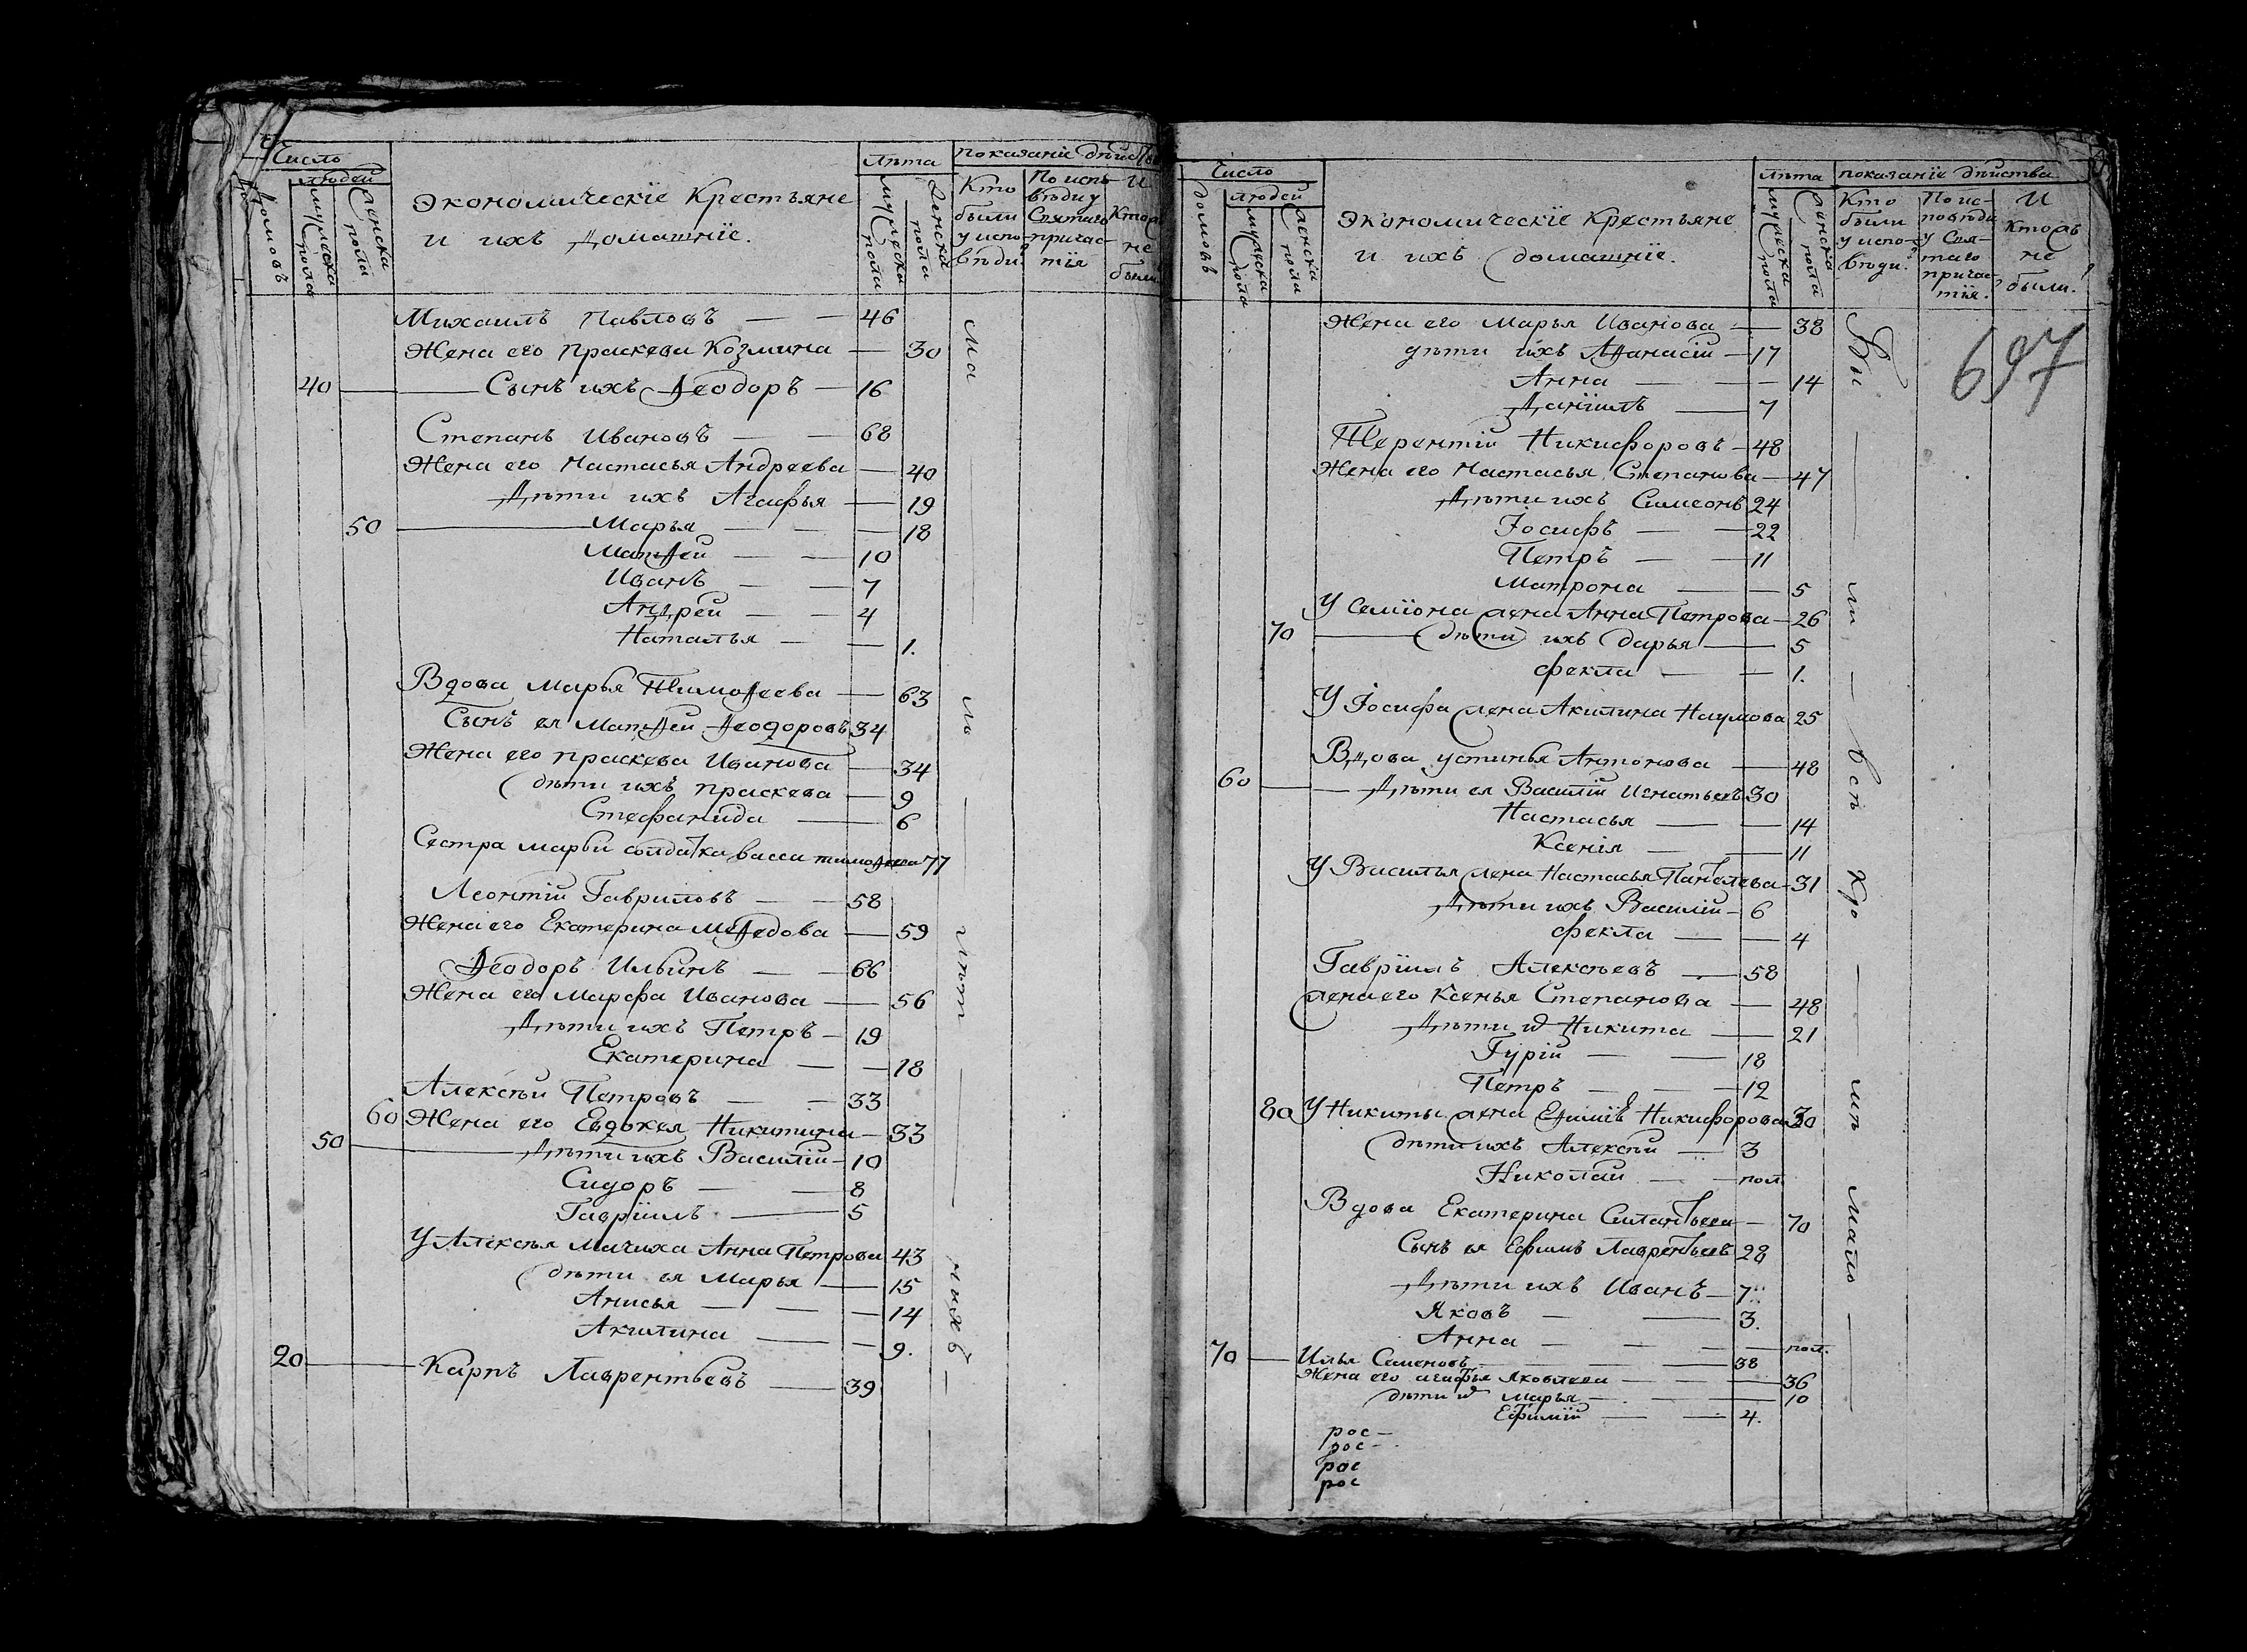 Число
людей
домовъ
мужеска пола
женска пола
Экономическїе Крестьяне
и ихъ домашнїе.
Лѣта
мужеска пола
женска пола
показанїе дѣйства
Кто были у исповѣди
По исповѣди у Святаго причастїя
И Кто не были
Михаилъ Павловъ — 46
Жена его Праскева Козмина — 30
40 — Сынъ ихъ Ѳеодоръ — 16
Степанъ Ивановъ — 68
Жена его Настасья Андреева — 40
Дѣти ихъ Агафья — 19
50 — Марья — 18
Матѳей — 10
Иванъ — 7
Андрей — 4
Наталья — 1.
Вдова Марья Тимоѳеева — 63
Сынъ ея Матѳей Ѳеодоровъ 34
Жена его Праскева Иванова — 34
дѣти ихъ Праскева — 9
Стефанида — 6
Сестра марьи солдатка васса тимоѳеева 77
Леонтїй Гавриловъ — 58
Жена его Екатерина Меѳедова — 59
Ѳеодоръ Ильинъ — 66
Жена его Марфа Иванова — 56
Дѣти ихъ Петръ — 19
Екатерина — 18
Алексѣй Петровъ — 33
60 Жена его Евдокея Никитина — 33
50 — Дѣти ихъ Василїй — 10
Сидоръ — 8
Гаврїилъ — 5
У Алексѣя Мачиха Анна Петрова 43
дѣти ея Марья — 15
Анисья — 14
Акилина — 9.
20 — Карпъ Лаврентьевъ — 39
ма — лѣт — нихъ —
Число
людей
домовъ
мужеска пола
женска пола
Экономическїе Крестьяне
и ихъ домашнїе.
Лѣта
мужеска пола
женска пола
показанїе дѣйства
Кто были у исповѣди.
По исповѣди у Святаго причастїя.
И Ктожъ не были.
697
Жена его Марья Иванова — 38
дѣти ихъ Аѳанасїй — 17
Анна — 14
Данїилъ — 7
Терентїй Никифоровъ — 48
Жена его Настасья Степанова — 47
Дѣти ихъ Симеонъ 24
Іосифъ — 22
Петръ — 11
Матрона — 5
У Семїона жена Анна Петрова — 26
70 — дѣти ихъ Дарья — 5
Фекла — 1.
У Іосифа жена Акилина Наумова 25
Вдова Устинья Антонова — 48
60 — Дѣти ея Василїй Игнатьевъ 30
Настасья — 14
Ксенія — 11
У Василья жена Настасья Панѳелева — 31
Дѣти ихъ Василїй — 6
Фекла — 4
Гаврїилъ Алексѣевъ — 58
жена его Ксенья Степанова — 48
Дѣти их Никита — 21
Гурїй — 18
Петръ — 12
80 У Никиты жена Никифорова 30
дѣти ихъ Алексѣй — 3
Николай — пол.
Вдова Екатерина Силантьева — 70
Сынъ ея Ефимъ Лаврентьевъ 28
Дѣти ихъ Иванъ — 7
Яковъ — 3.
Анна — пол.
70 — Илья Семеновъ — 38
Жена его агафья Яковлева — 36
дѣти их Марья — 10
Ефимїй — 4.
рос —
рос —
рос
рос
Бы — ли — всѣ Кро — мѣ мало —